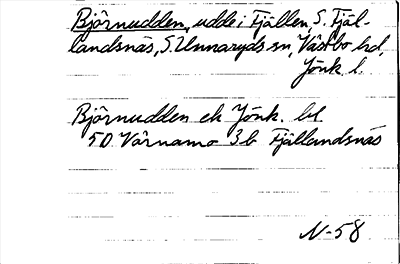 Björnudden, udde i Fjällen, S. Fjäl-
landsnäs, S. Unnaryds sn, Västbo hd,
Jönk l.
Björnudden ek Jönk. bl
50 Värnamo 3b Fjällandsnäs
N-58